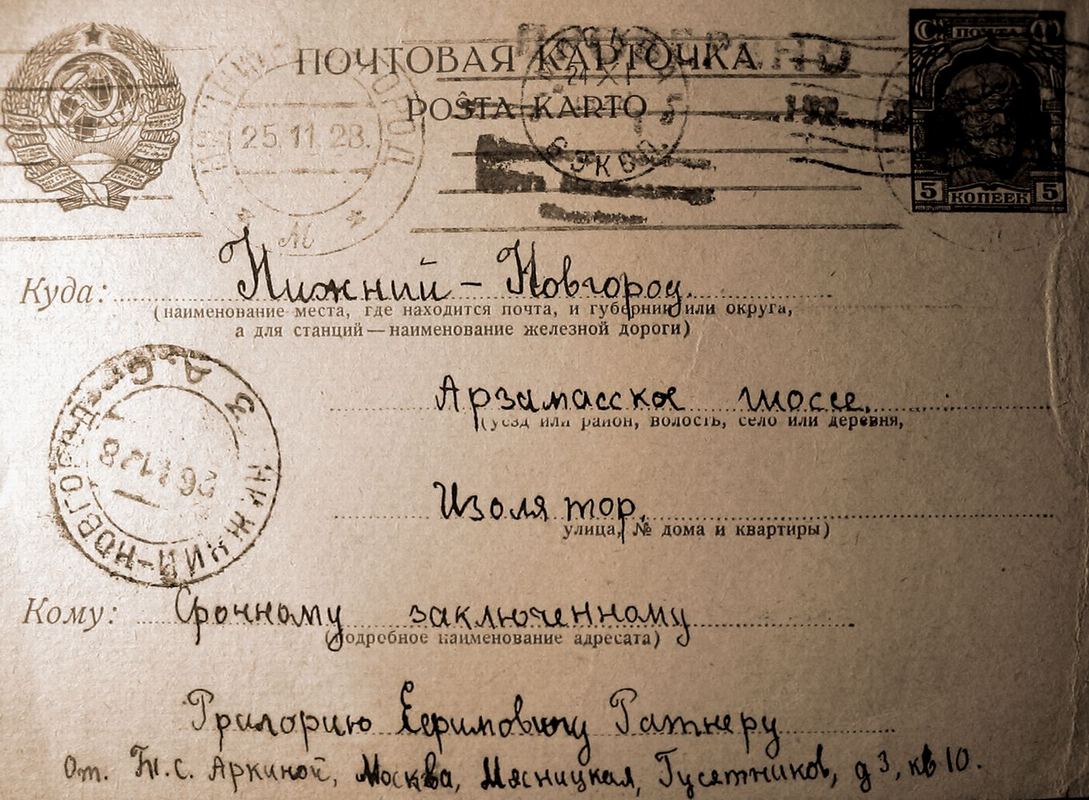 ПОЧТОВАЯ КАРТОЧКА
POŜTA KARTO
ПОЧТА
5 КОПЕЕК 5
25.11.28.
24 XI
Куда: Нижний-Новгород.
(наименование места, где находится почта, и губернии или округа,
а для станций — наименование железной дороги)
Арзамасское шоссе,
(уезд или район, волость, село или деревня,
Изолятор,
улица, № дома и квартиры)
НИЖНИЙ-НОВГОРОД
Кому: Срочному заключенному
(подробное наименование адресата)
Григорию Ефимовичу Ратнеру
От. Т.С. Аркиной, Москва, Мясницкая, Гусятников, д 3, кв 10.